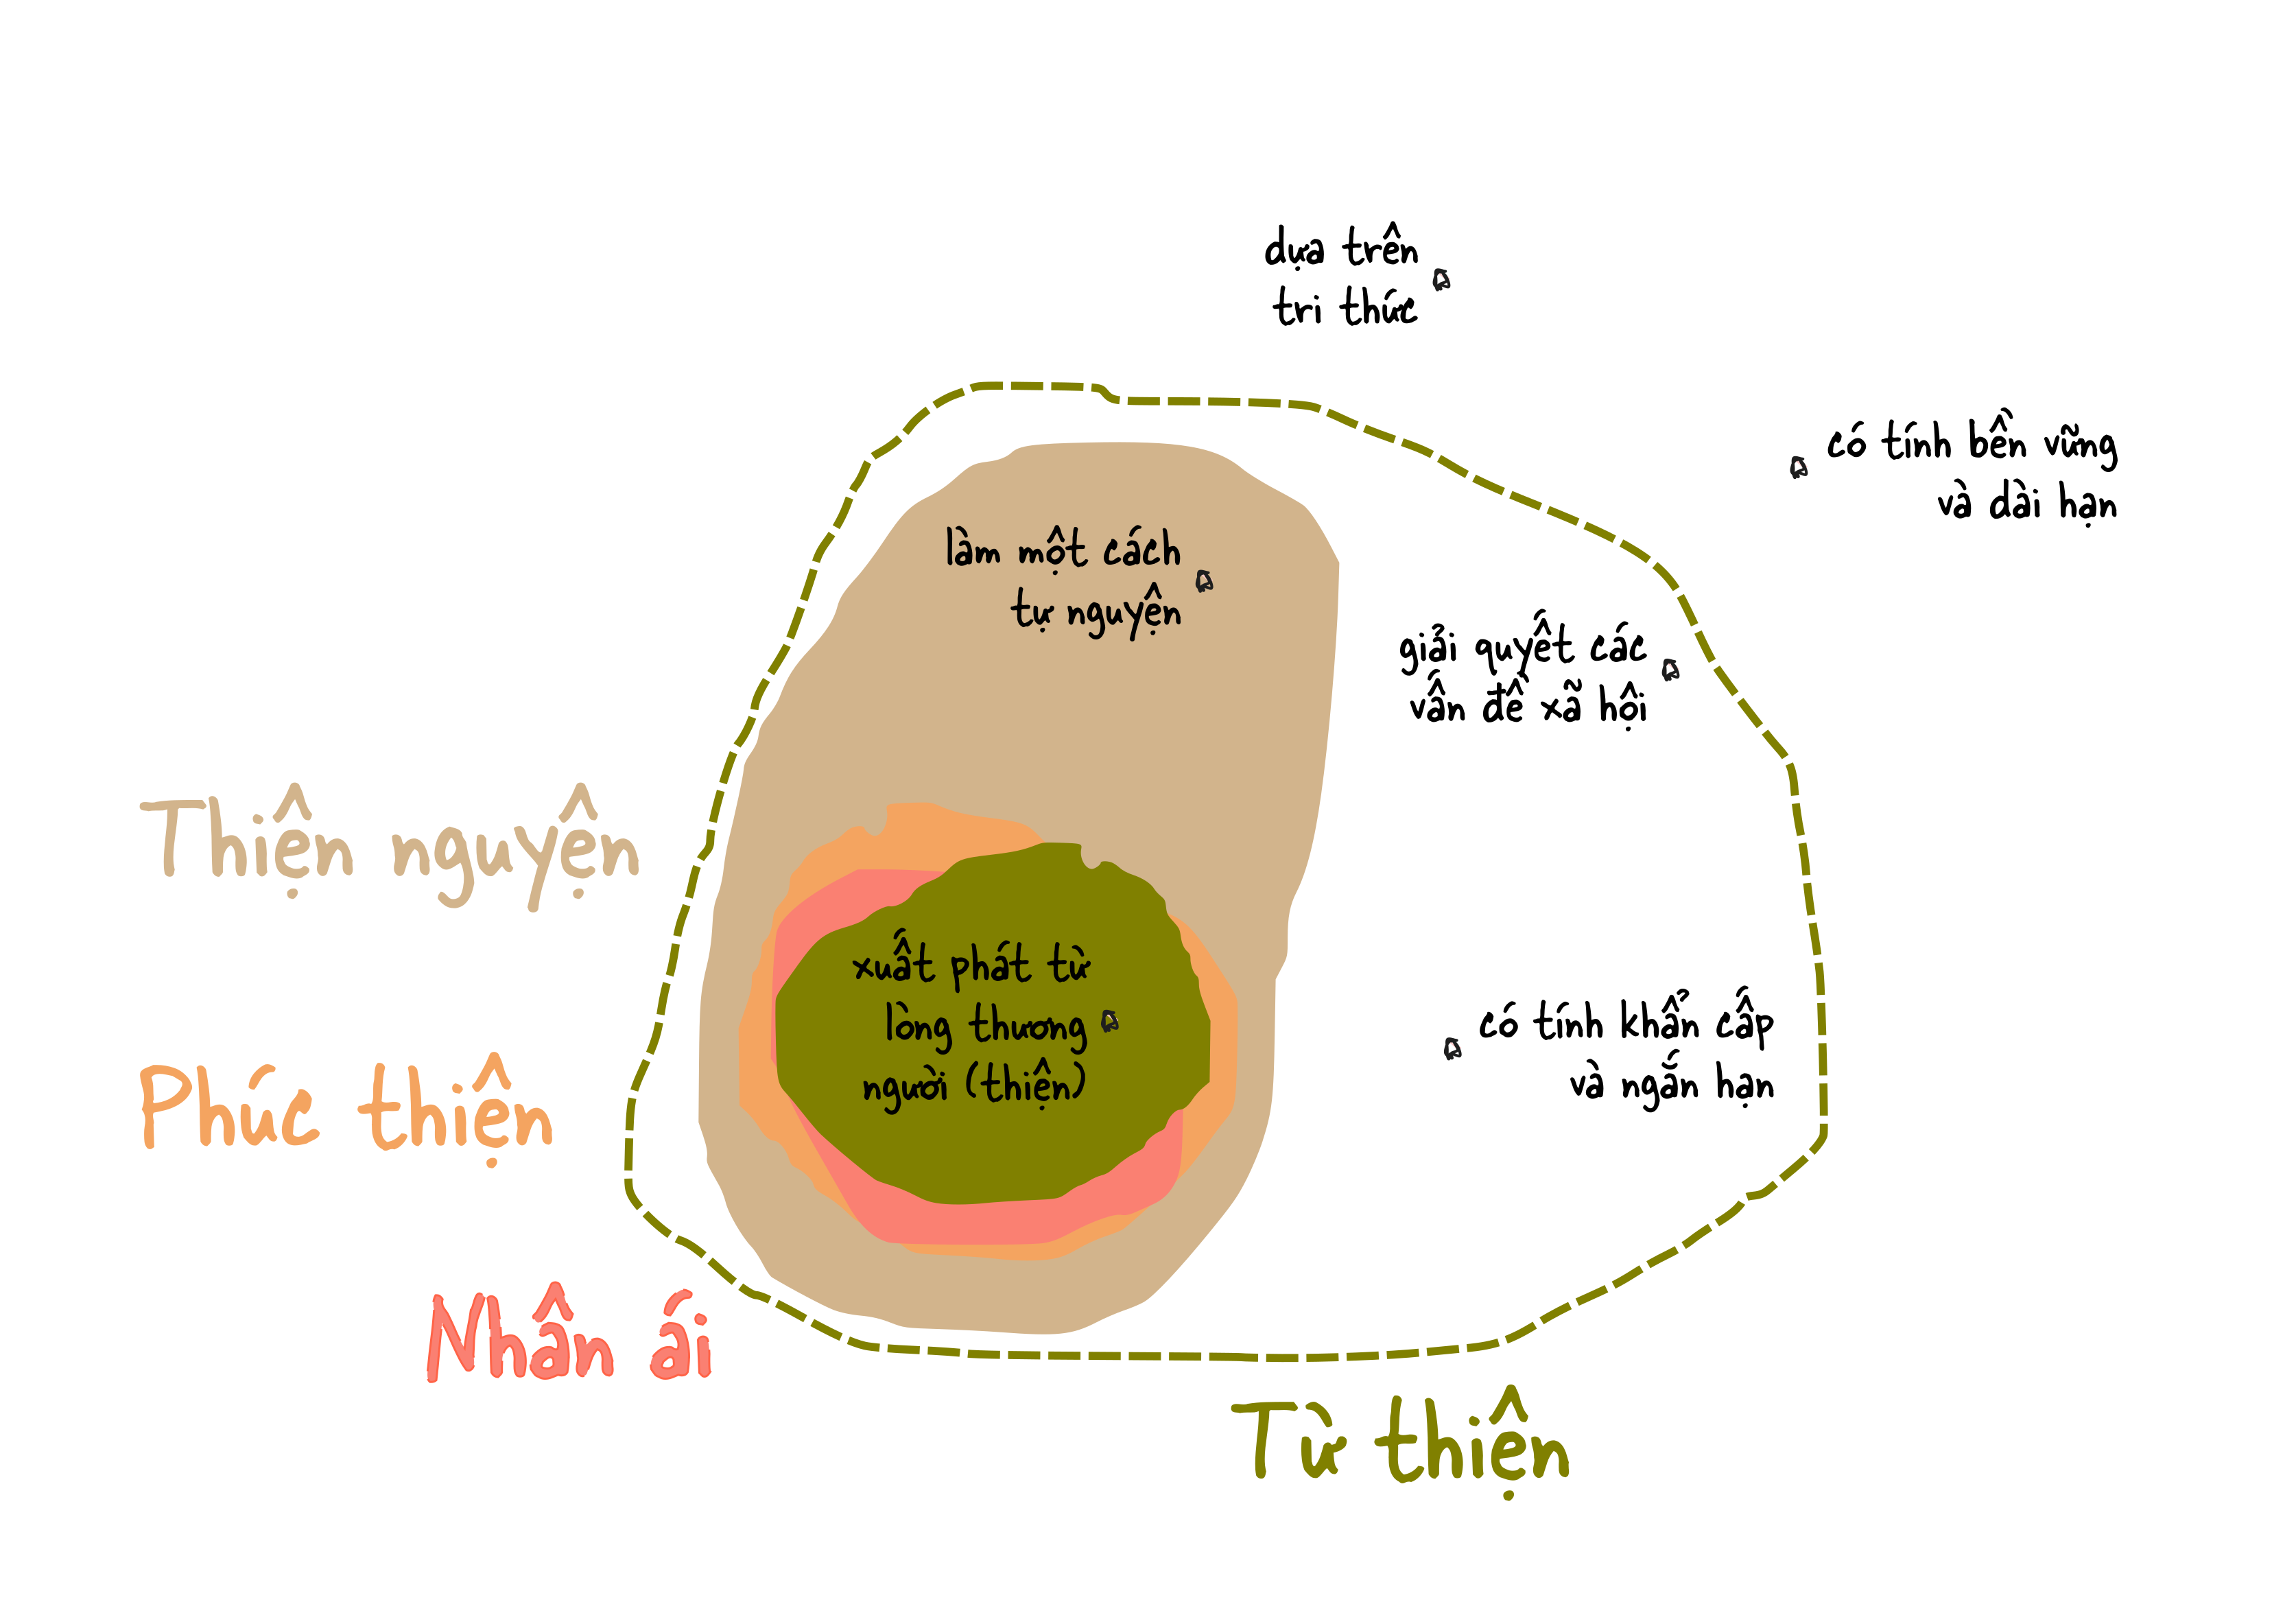 dựa trên
tri thức
có tính bền vững
và dài hạn
làm một cách
tự nguyện
giải quyết các
vấn đề xã hội
Thiện nguyện
xuất phát từ
lòng thương
người (thiện)
có tính khẩn cấp
và ngắn hạn
Phúc thiện
Nhân ái
Từ thiện